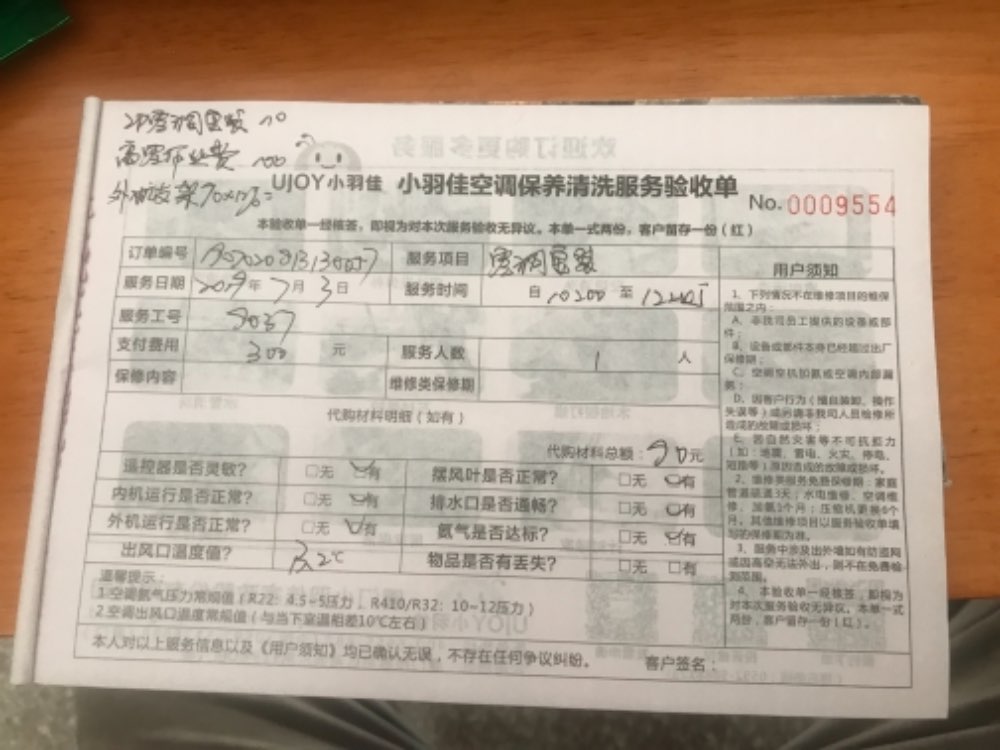 高空作业费 100
UJOY小羽佳 小羽佳空调保养清洗服务验收单
No. 0009554
本验收单一经核签，即视为对本次服务验收无异议。本单一式两份，客户留存一份（红）
订单编号 服务项目
服务日期 2019年7月3日 服务时间 自 至
服务工号 8037
支付费用 300 元 服务人数 1 人
保修内容 维修类保修期
代购材料明细（如有）
代购材料总额： 90元
遥控器是否灵敏？ □无 □有 摆风叶是否正常？ □无 □有
内机运行是否正常？ □无 □有 排水口是否通畅？ □无 □有
外机运行是否正常？ □无 □有 氨气是否达标？ □无 □有
出风口温度值？ 2℃ 物品是否有丢失？ □无 □有
温馨提示：
1.空调氨气压力常规值（R22：4.5~5压力，R410/R32：10~12压力）
2.空调出风口温度常规值（与当下室温相差10℃左右）
本人对以上服务信息以及《用户须知》均已确认无误，不存在任何争议纠纷。 客户签名：
用户须知
1、下列情况不在维修项目的维保
范围之内：
A、非我司员工提供的设备或部
件；
B、设备或部件本身已经超过出厂
保修期；
C、空调空机加氨或空调内部漏
氨；
D、因客户行为（擅自装卸、操作
失误等）或另请非我司人员检修所
造成的故障或损坏；
E、因自然灾害等不可抗拒力
（如：地震、雷电、火灾、停电、
短路等）原因造成的故障或损坏。
2、维修类服务免费保修期：家庭
管道疏通3天，水电维修、空调维
修、加氨1个月；压缩机更换6个
月，其他维修项目以服务验收单填
写的保修期为准。
3、服务中涉及出外墙如有防盗网
或因高空无法外出，则不在免费检
测范围。
4、本验收单一经核签，即视为
对本次服务验收无异议。本单一式
两份，客户留存一份（红）。
欢迎订购更多服务